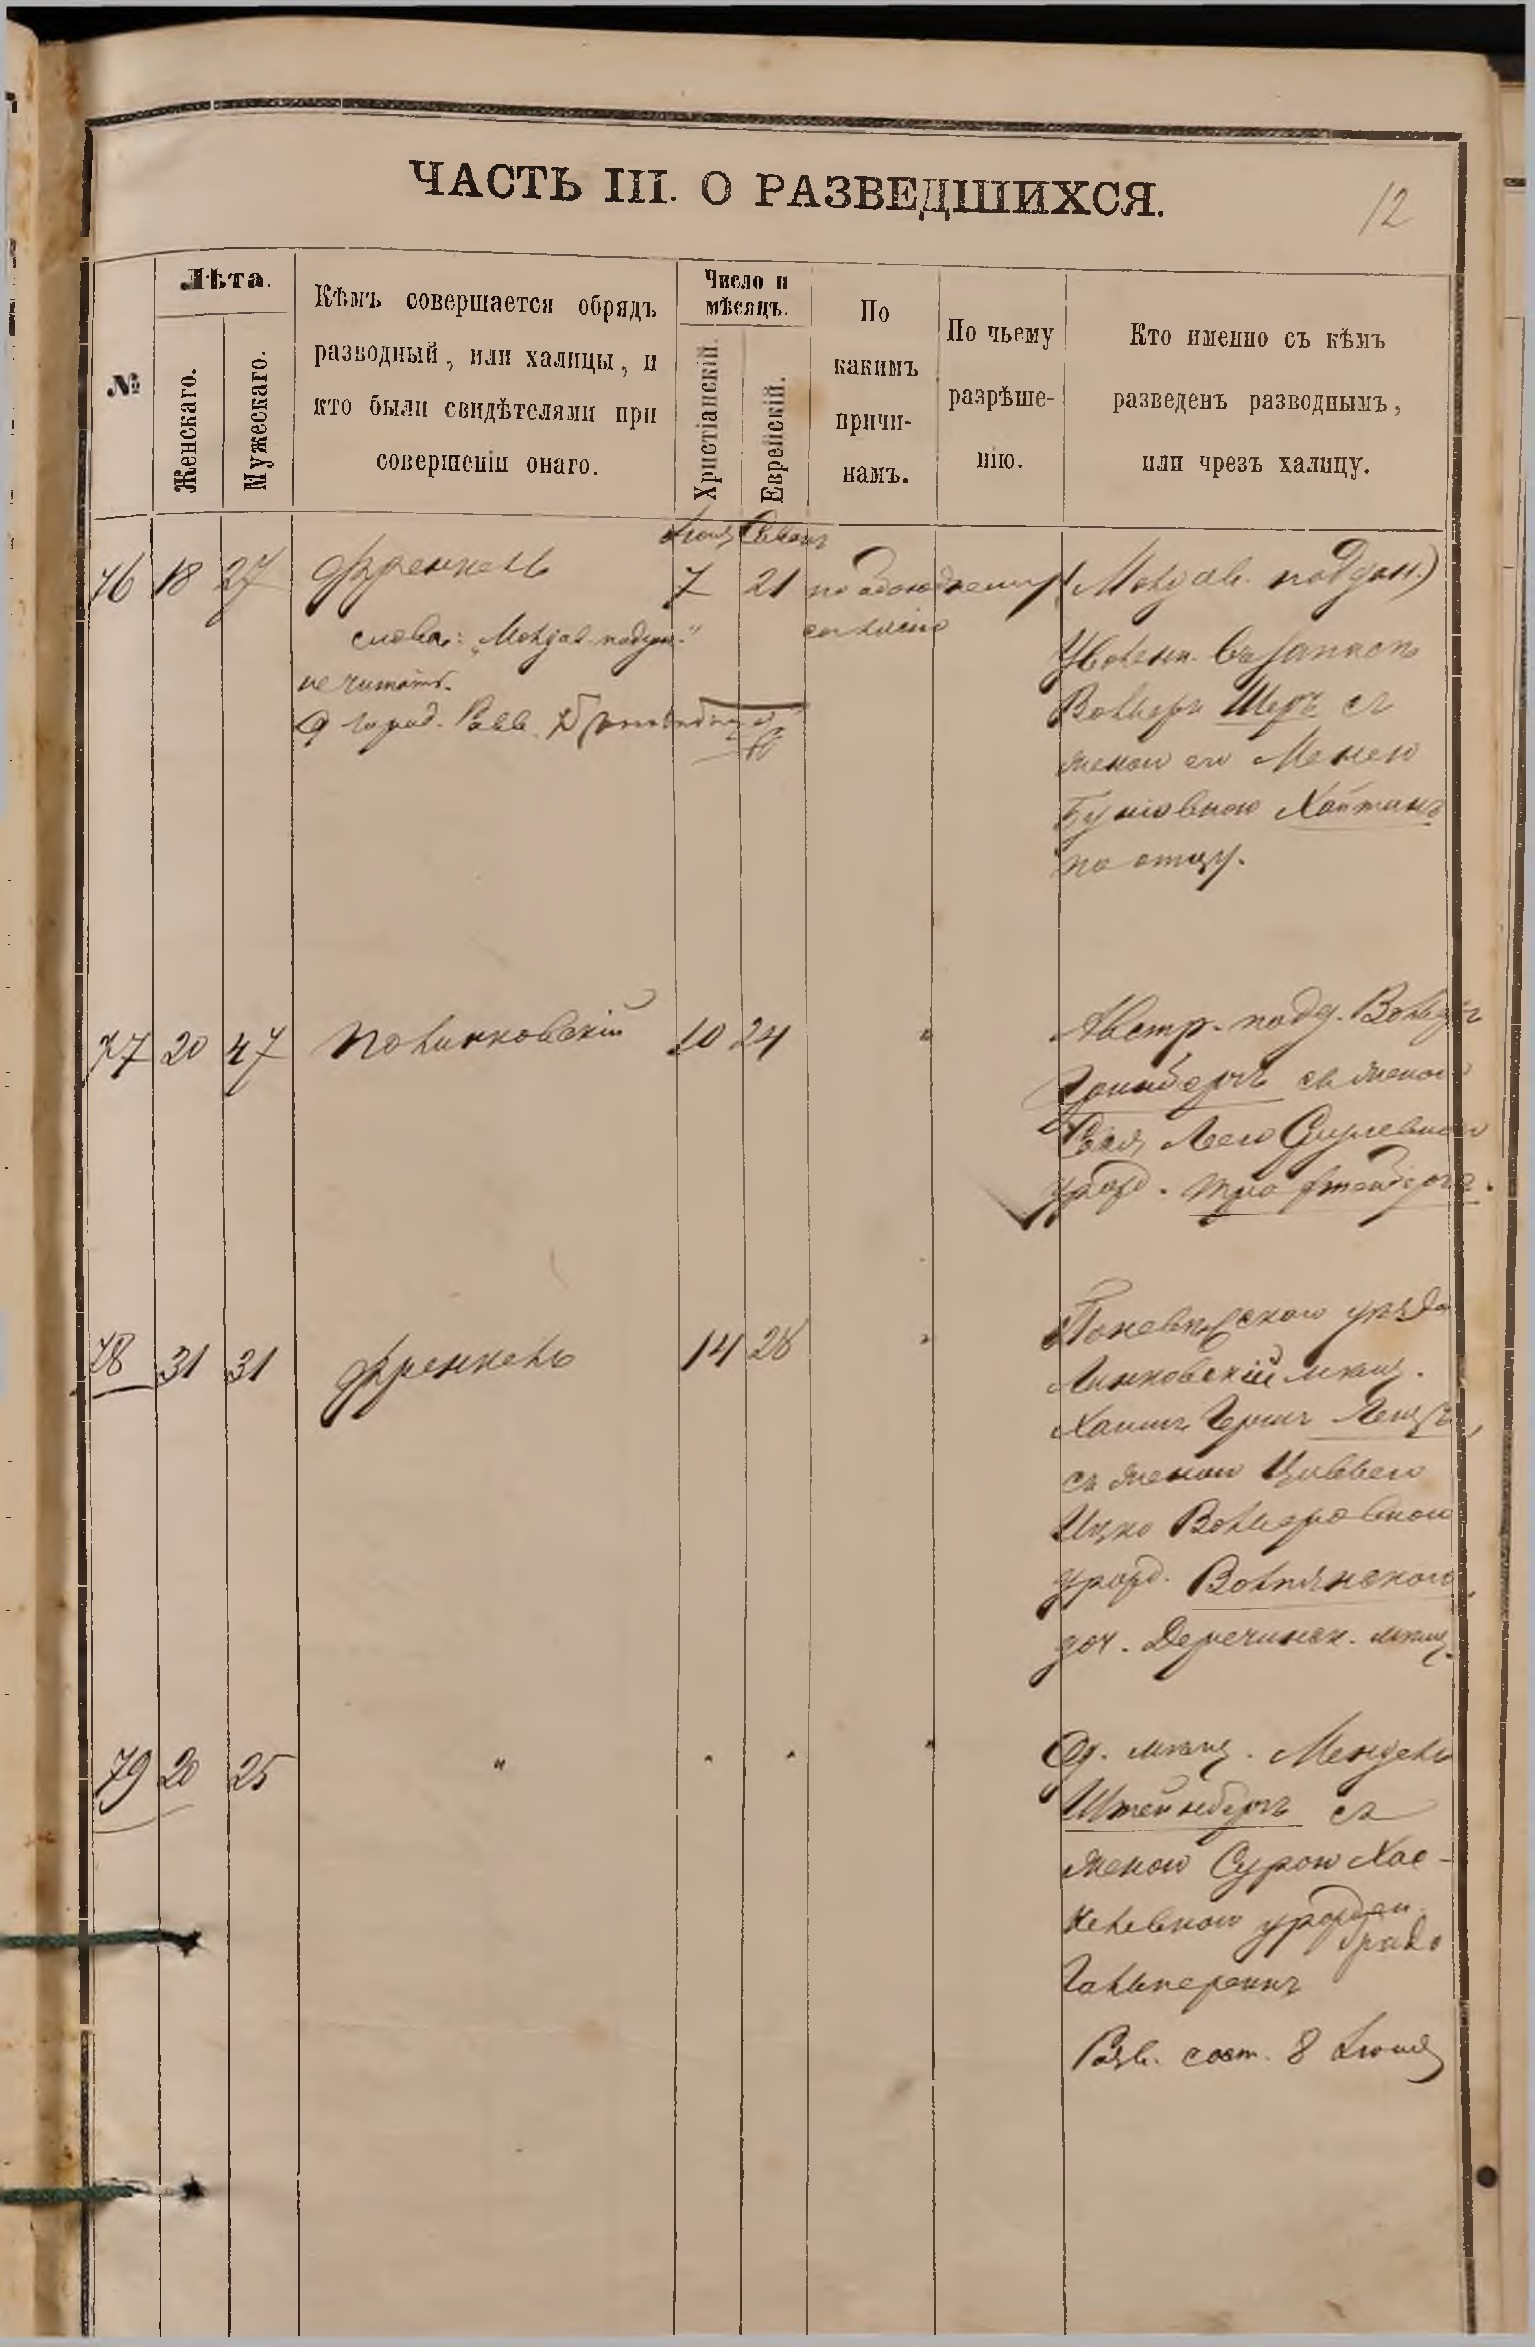 ЧАСТЬ III. О РАЗВЕДШИХСЯ.
12
№
Лѣта.
Женскаго.
Мужескаго.
Кѣмъ совершается обрядъ
разводный, или халицы, и
кто были свидѣтелями при
совершеніи онаго.
Число и
мѣсяцъ.
Христіанскій.
Еврейскій.
По
какимъ
причи-
намъ.
По чьему
разрѣше-
нію.
Кто именно съ кѣмъ
разведенъ разводнымъ,
или чрезъ халицу.
Іюня Сиванъ
76 18 27 Френкель 7 21 по обоюдному
согласію
слова: „Молдав. поддан."
не читать.
О город. Равв.
(Молдав. поддан.)
Вольфъ Шеръ съ
женою его Менею
Хайтинъ
по отцу.
77 20 47 Полинковскій 10 24 "
Австр. подд. Вольфъ
Гринбергъ съ женою
Лею Срулевною
урожд.
78 31 31 Френкель 14 28 "
Поневѣжскаго уѣзда
Линковскій мѣщ.
Хаимъ Гершъ
съ женою Цивьею
Ицко Вольфовною
урожд. Волынскою,
доч. Деречинск. мѣщ.
79 20 25 " " " "
Од. мѣщ. Мендель
Штейнбергъ съ
женою Сурою Хас-
келевною урожден.
Гальперинъ
Разв. сост. 8 Іюня